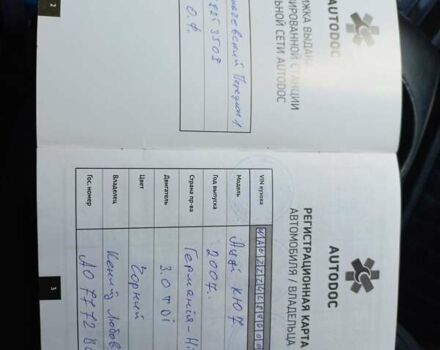 2
AUTODOC
ЖКА ВЫДАН
ИРОВАННОЙ СТАНЦИИ
ЬНОЙ СЕТИ AUTODOC
О.Ф.
AUTODOC
РЕГИСТРАЦИОННАЯ КАРТА
АВТОМОБИЛЯ / ВЛАДЕЛЬЦА
VIN кузова
Модель Ауди КЮ7
Год выпуска 2007.
Страна пр-ва Германія - Ні
Двигатель 3.0 TDi
Цвет Чорний
Владелец Любов
Гос. номер АО 7772 В
3